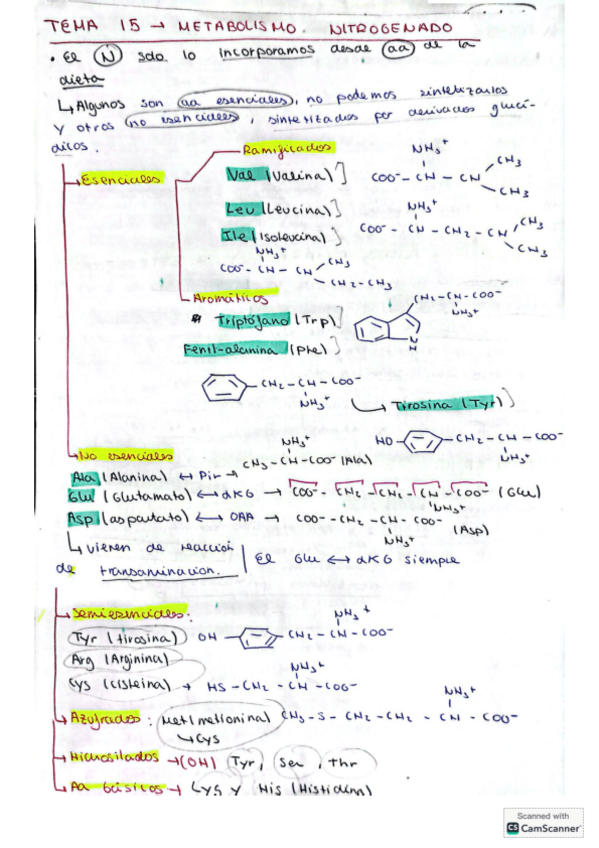 TEMA 15 → METABOLISMO NITROGENADO
• El N solo lo incorporamos desde aa de la
dieta
↳ Algunos son aa esenciales, no podemos sintetizarlos
y otros no esenciales, sintetizados por derivados glucí-
dicos.
→ Esenciales
Ramificados
Val (Valina)]
COO⁻ – CH – CH
NH₃⁺
CH₃
CH₃
Leu (Leucina)]
COO⁻ – CH – CH₂ – CH
NH₃⁺
CH₃
CH₃
Ile (Isoleucina)]
NH₃⁺
COO⁻ – CH – CH
CH₃
CH₂ – CH₃
Aromáticos
Triptófano (Trp)]
CH₂ – CH – COO⁻
NH₃⁺
N
H
Fenil-alanina (Phe)]
CH₂ – CH – COO⁻
NH₃⁺
↳ Tirosina (Tyr)]
HO
CH₂ – CH – COO⁻
NH₃⁺
→ No esenciales
NH₃⁺
Ala (Alanina) ↔ Pir → CH₃ – CH – COO⁻ (Ala)
Glu (Glutamato) ↔ αKG → COO⁻ – CH₂ – CH₂ – CH – COO⁻ (Glu)
NH₃⁺
Asp (aspartato) ↔ OAA → COO⁻ – CH₂ – CH – COO⁻ (Asp)
NH₃⁺
↳ vienen de reacción
de transaminacion.
El Glu ↔ αKG siempre
→ Semiesenciales:
Tyr (tirosina) OH
CH₂ – CH – COO⁻
NH₃⁺
Arg (Arginina)
Cys (cisteína) → HS – CH₂ – CH – COO⁻
NH₃⁺
→ Azufrados: Met (metionina) CH₃ – S – CH₂ – CH₂ – CH – COO⁻
NH₃⁺
↳ Cys
→ Hidroxilados → (OH) Tyr, Ser, thr
→ Aa básicos → Lys y His (Histidina)
Scanned with
CS CamScanner